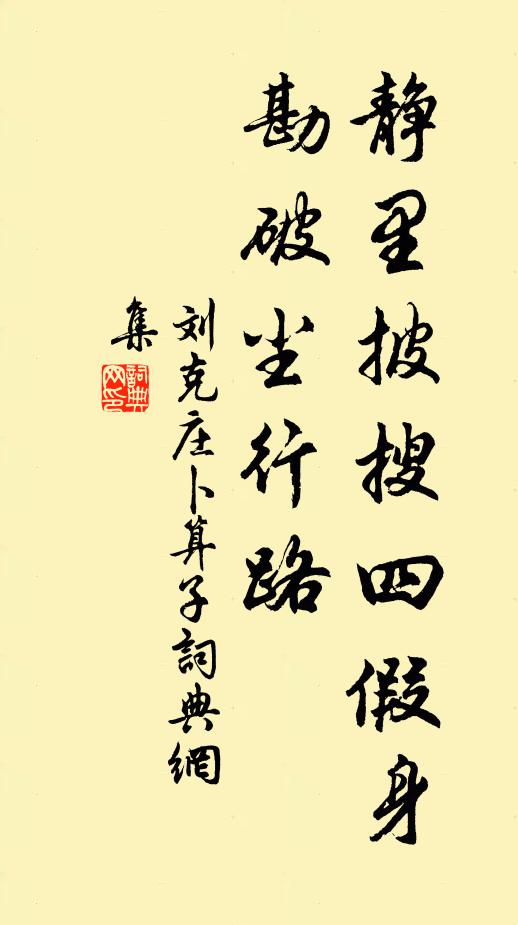 静里披搜四假身
勘破尘行路
刘克庄卜算子詞典網
集
詞典
网印